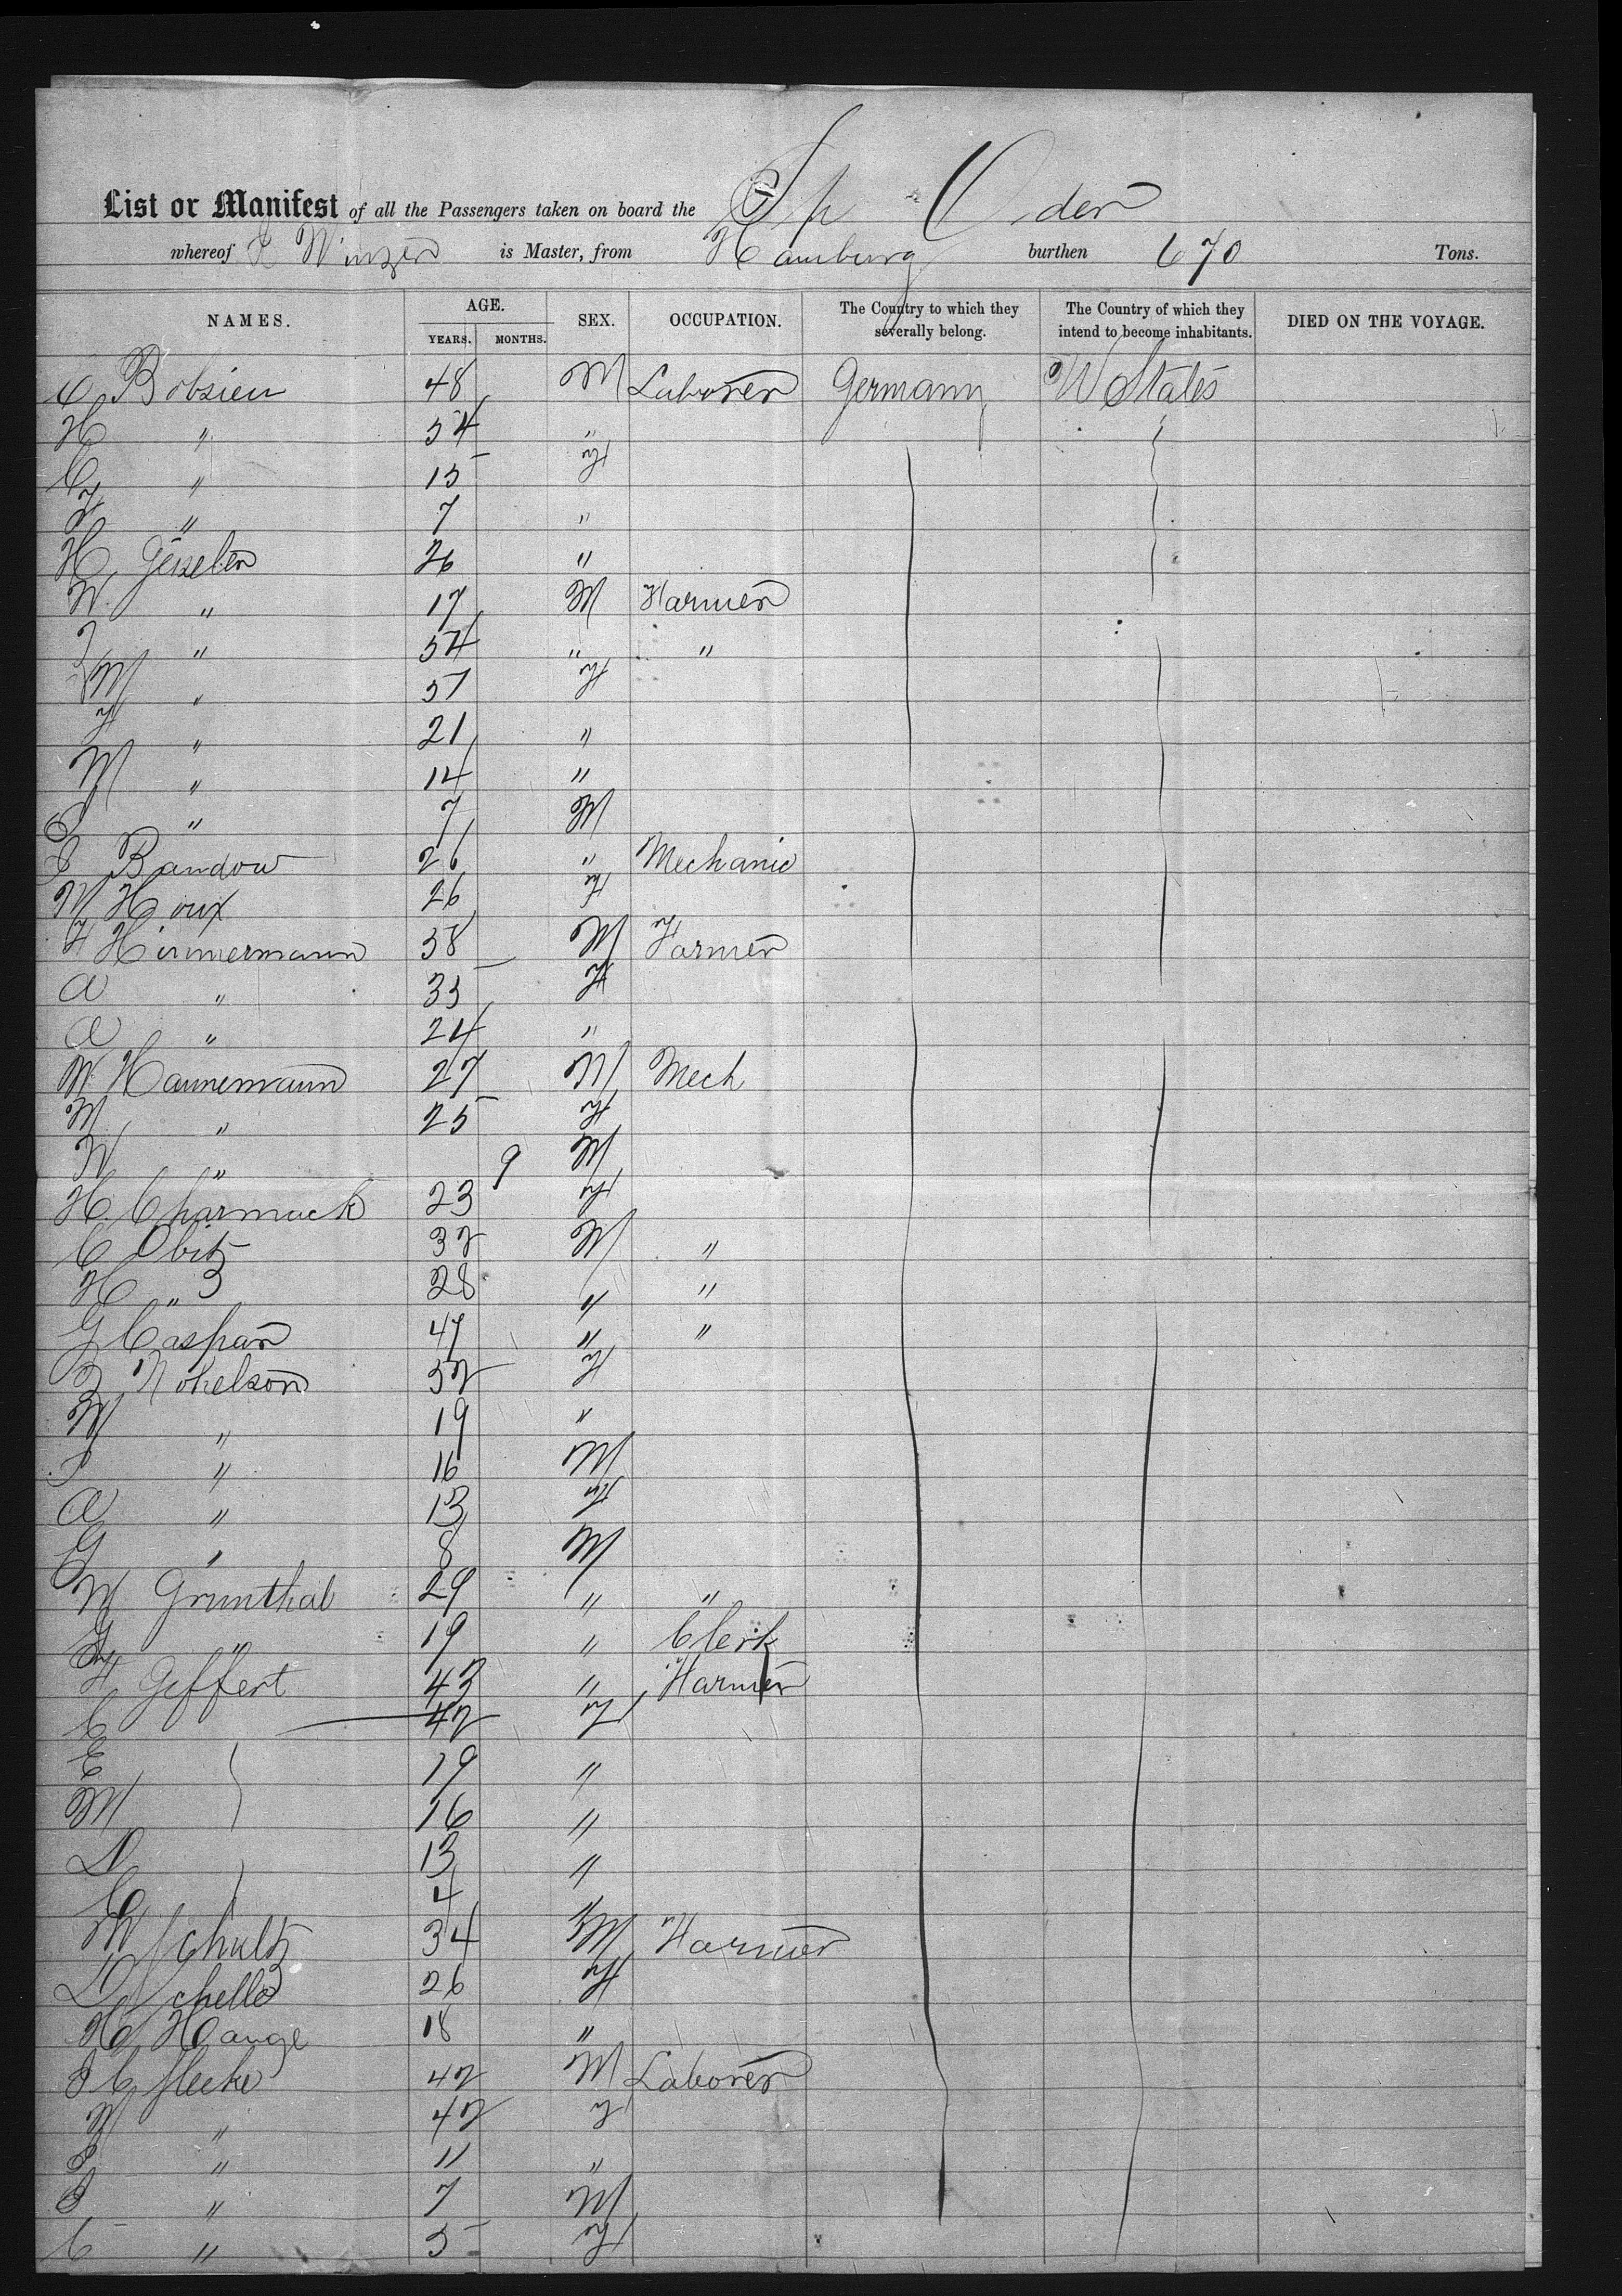 List or Manifest of all the Passengers taken on board the Sp Oder
whereof R Winzen is Master, from Hamburg burthen 670 Tons.
NAMES. AGE. YEARS. MONTHS. SEX. OCCUPATION. The Country to which they severally belong. The Country of which they intend to become inhabitants. DIED ON THE VOYAGE.
C Bobsien 48 M Laborer Germany U States
H " 54 "
C " 15 F
F " 7 "
H Geiseler 26 "
W " 17 M Farmer
" 54 " "
M " 51 F
F " 21 "
M " 14 "
" 7 M
Bandow 26 " Mechanic
M Houx 26 F
F Himmermann 38 M Farmer
A " 35 F
A " 24 "
W Hannemann 27 M Mech
M " 25 F
W " 9 M
H Charmack 23 F
C Obitz 32 M "
H " 28 " "
G Caspar 47 " "
Nokelson 52 F
M " 19 "
" 16 M
A " 13 F
G " 8 M
M Grunthal 29 " "
" 19 " Clerk
F Geffert 43 " Farmer
C 42 F
E 19 "
M 16 "
D 13 "
C 4 "
W Schultz 34 M Farmer
D Schello 26 F
H Hange 18 "
J C Flecke 42 M Laborer
M " 42 F
" 11 "
J " 7 M
C " 5 F